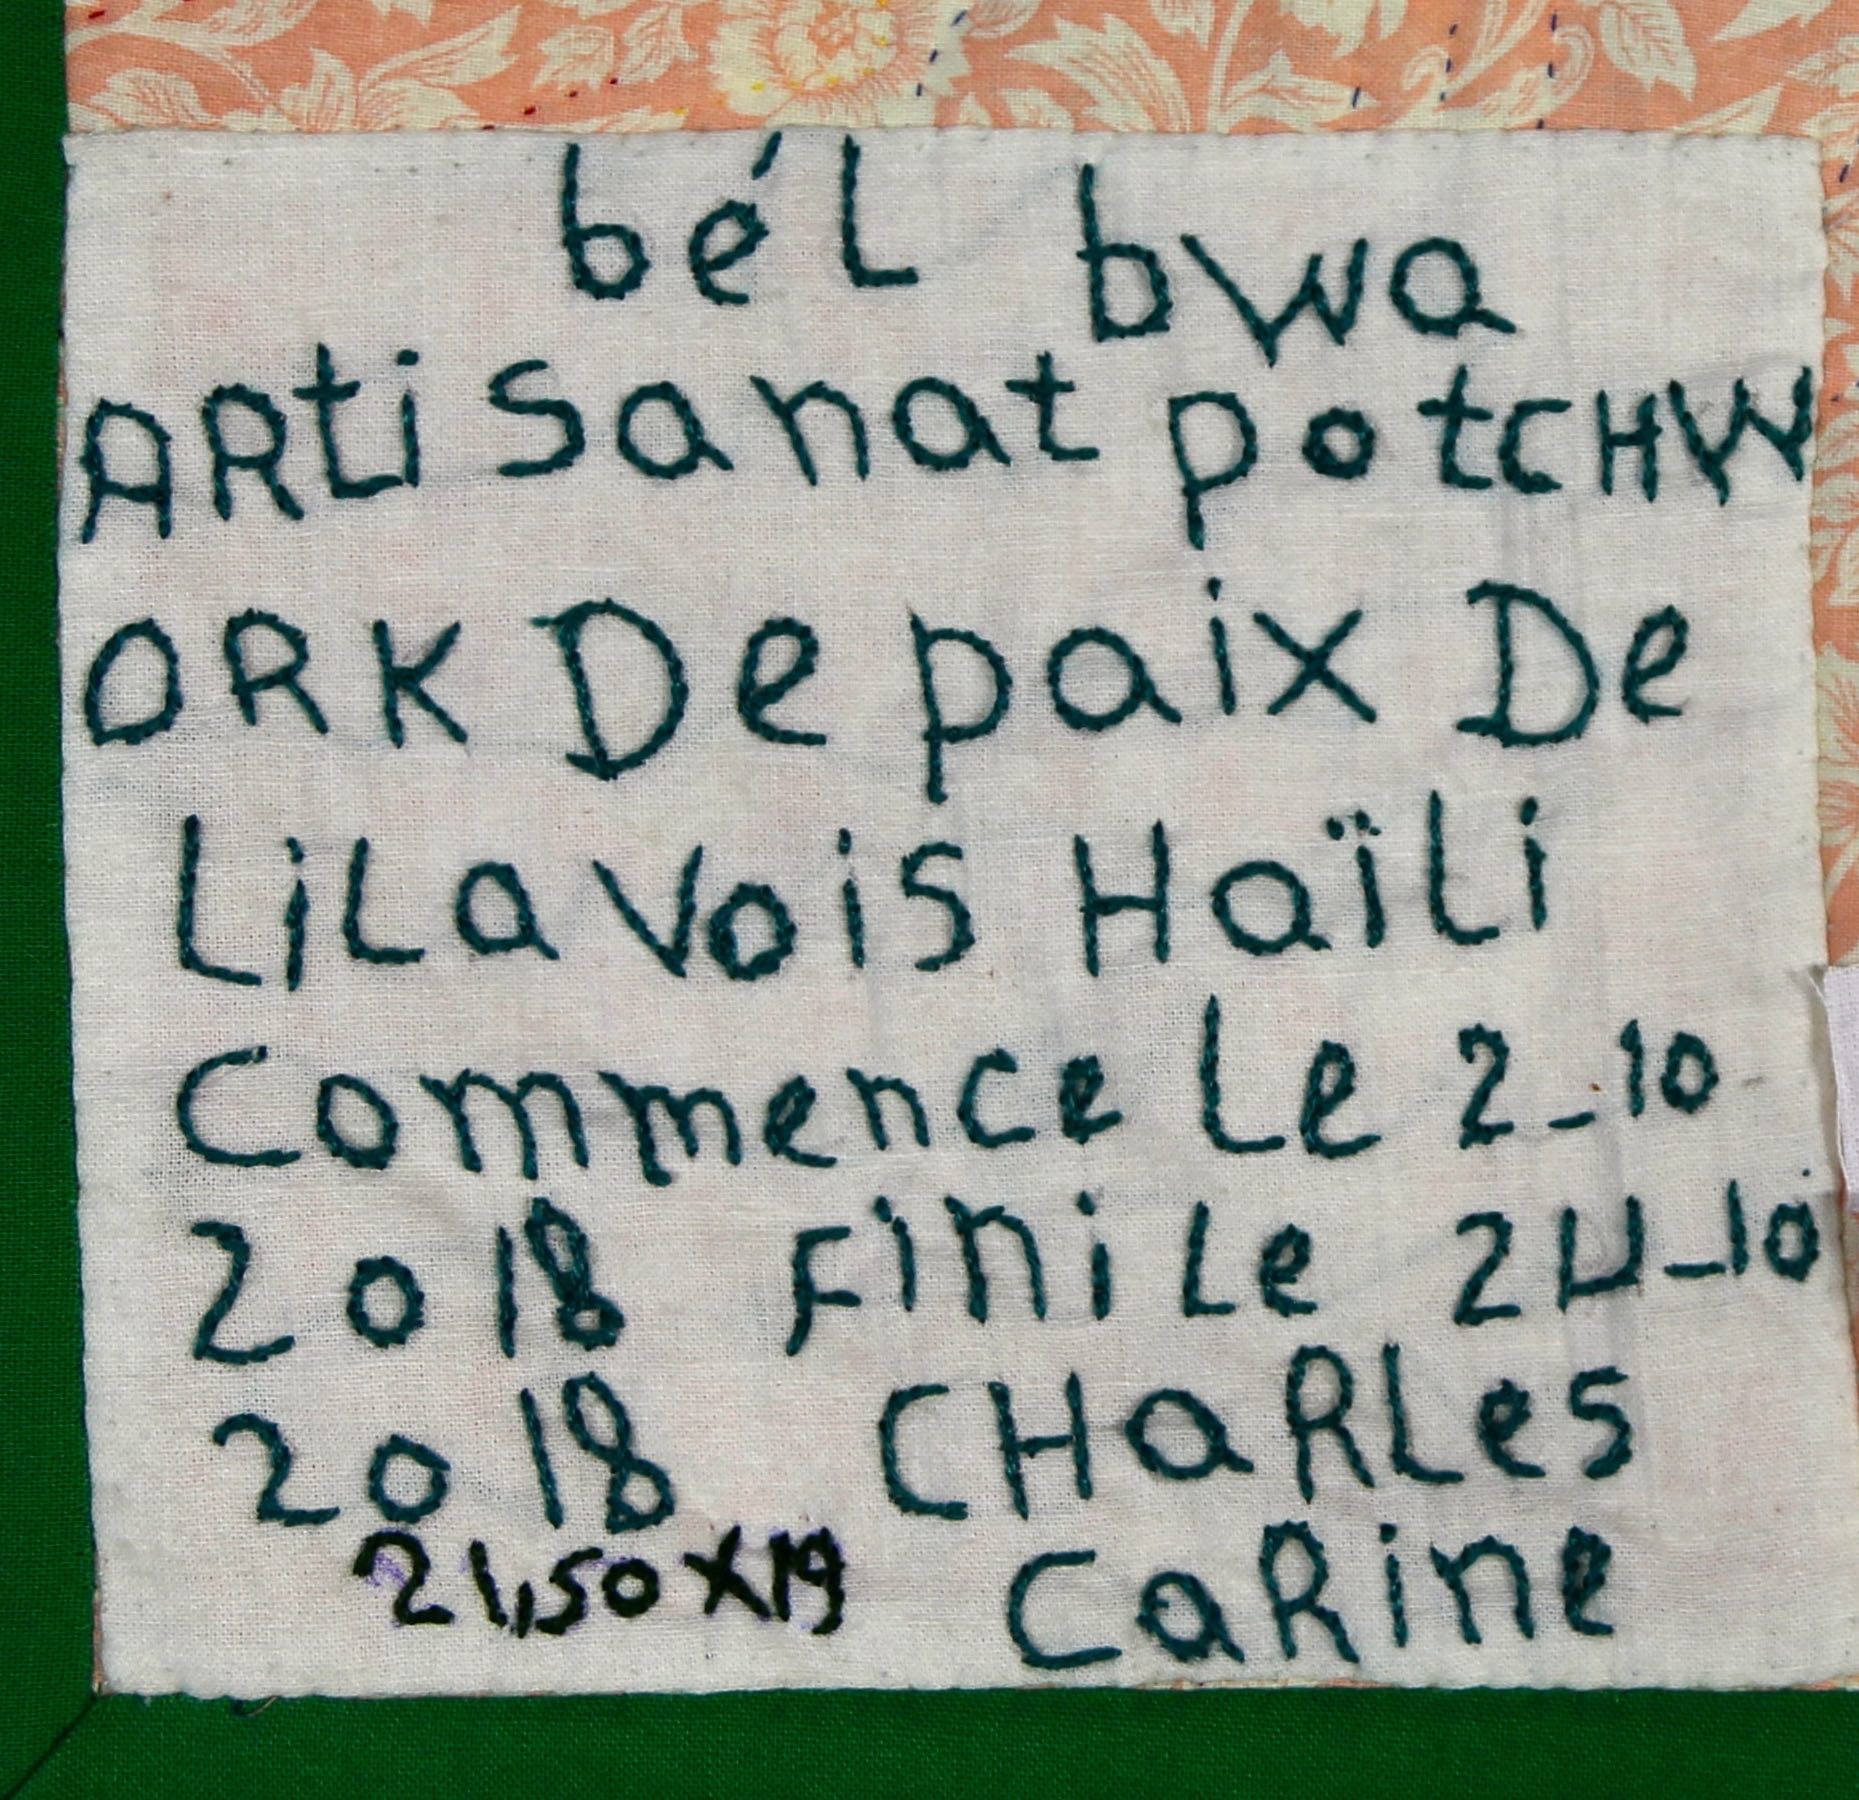 béL bwa
ARtisanat potcHW
ORK De paix De
LiLavois HaïLi
Commence Le 2_10
2018 Fini Le 24_10
2018 CHaRLes
21,50x19 CaRine